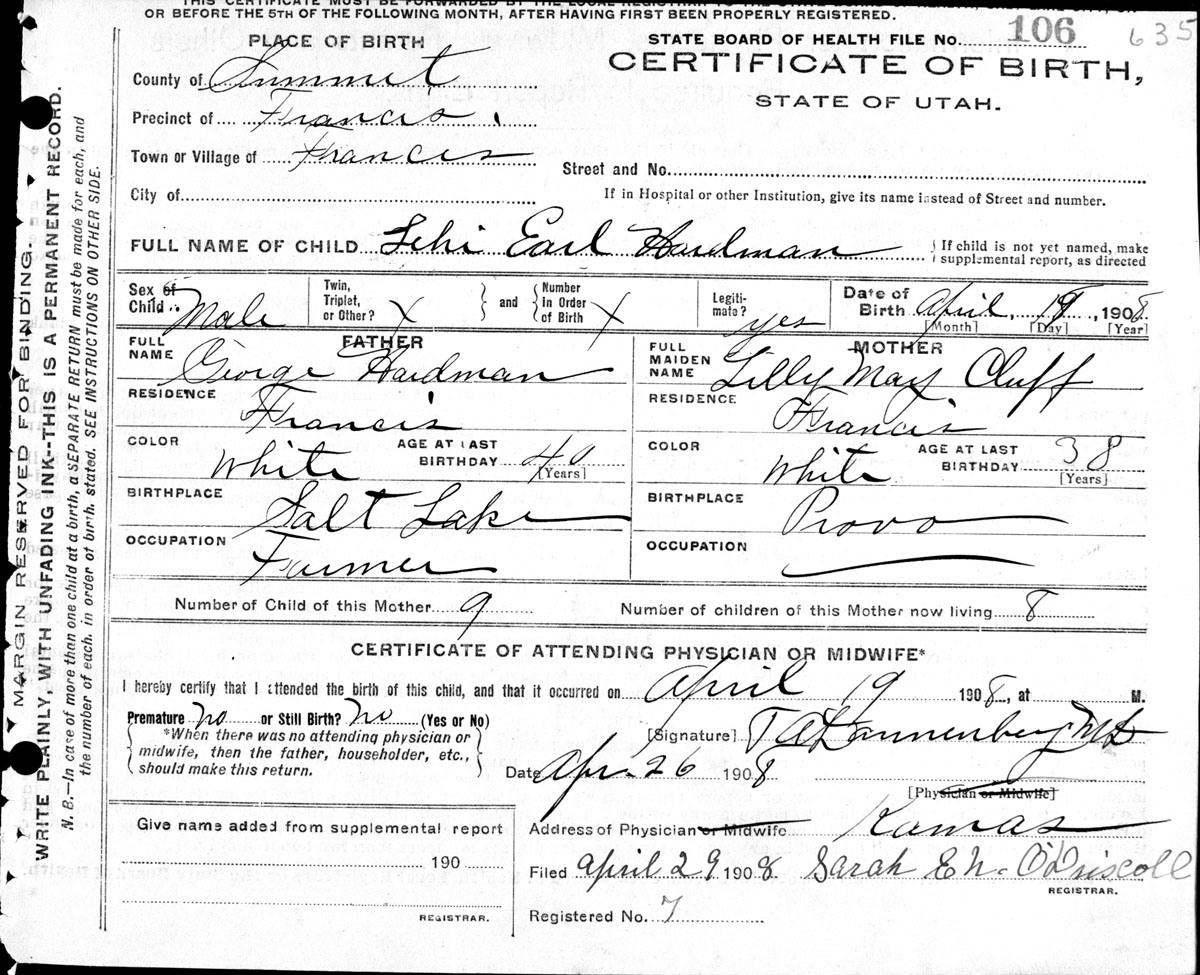 OR BEFORE THE 5TH OF THE FOLLOWING MONTH, AFTER HAVING FIRST BEEN PROPERLY REGISTERED.
PLACE OF BIRTH
STATE BOARD OF HEALTH FILE No. 106 635
County of Summit
CERTIFICATE OF BIRTH,
STATE OF UTAH.
Precinct of Francis.
Town or Village of Francis
Street and No.
City of
If in Hospital or other Institution, give its name instead of Street and number.
FULL NAME OF CHILD Lehi Earl Hardman
If child is not yet named, make supplemental report, as directed
Sex of Child Male
Twin, Triplet, or Other? X
and Number In Order of Birth X
Legitimate? yes
Date of Birth April, 19, 1908
[Month] [Day] [Year]
FATHER
FULL NAME George Hardman
RESIDENCE Francis
COLOR White AGE AT LAST BIRTHDAY [Years]
BIRTHPLACE Salt Lake
OCCUPATION Farmer
MOTHER
FULL MAIDEN NAME Lilly May Cluff
RESIDENCE Francis
COLOR White AGE AT LAST BIRTHDAY 38 [Years]
BIRTHPLACE Provo
OCCUPATION
Number of Child of this Mother 9
Number of children of this Mother now living 8
CERTIFICATE OF ATTENDING PHYSICIAN OR MIDWIFE*
I hereby certify that I attended the birth of this child, and that it occurred on April 19 1908, at M.
Premature no or Still Birth? no (Yes or No)
*When there was no attending physician or
midwife, then the father, householder, etc.,
should make this return.
[Signature] T A Dannenberg MD
Date Apr. 26 1908
[Physician or Midwife]
Give name added from supplemental report
190
REGISTRAR.
Address of Physician or Midwife Kamas
Filed April 29 1908. Sarah E N. O'Driscoll
REGISTRAR.
Registered No. 7
MARGIN RESERVED FOR BINDING.
WRITE PLAINLY, WITH UNFADING INK--THIS IS A PERMANENT RECORD.
N. B.—In case of more than one child at a birth, a SEPARATE RETURN must be made for each, and
the number of each, in order of birth, stated. SEE INSTRUCTIONS ON OTHER SIDE.